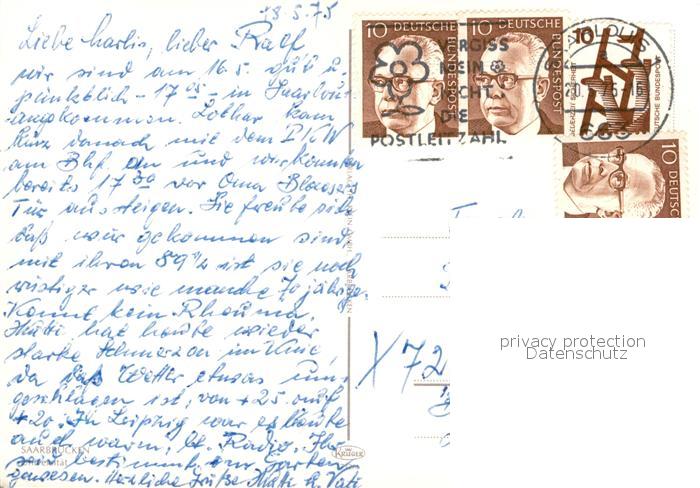 18.5.75
Liebe Marlis, lieber Ralf
wir sind am 16.5. gut u.
pünktlich - 17 05 - in Saarlouis
angekommen. Lothar kam
kurz danach mit dem PKW
am Bhf. an und wir konnten
bereits 17 30 vor Oma
Tür aussteigen. Sie freute sich
daß wir gekommen sind
mit ihren 89 1/2 ist sie noch
rüstiger wie manche 70 jährige.
Kennt kein Rheuma.
Mutti hat heute wieder
starke Schmerzen im Knie,
da das Wetter etwas um-
geschlagen ist, von +25 auf
+20. In Leipzig war es heute
auch warm, lt. Radio. Ihr
seid bestimmt im Garten
gewesen. Herzliche Grüße Mutti u. Vati
SAARBRÜCKEN
Universität
KRÜGER
10 DEUTSCHE BUNDESPOST
10 DEUTSCHE BUNDESPOST
10 DEUTSCHE BUNDESPOST
10 DEUTSCHE
VERGISS
MEIN
NICHT
DIE
POSTLEITZAHL
SAARLOUIS
663
X72
privacy protection
Datenschutz